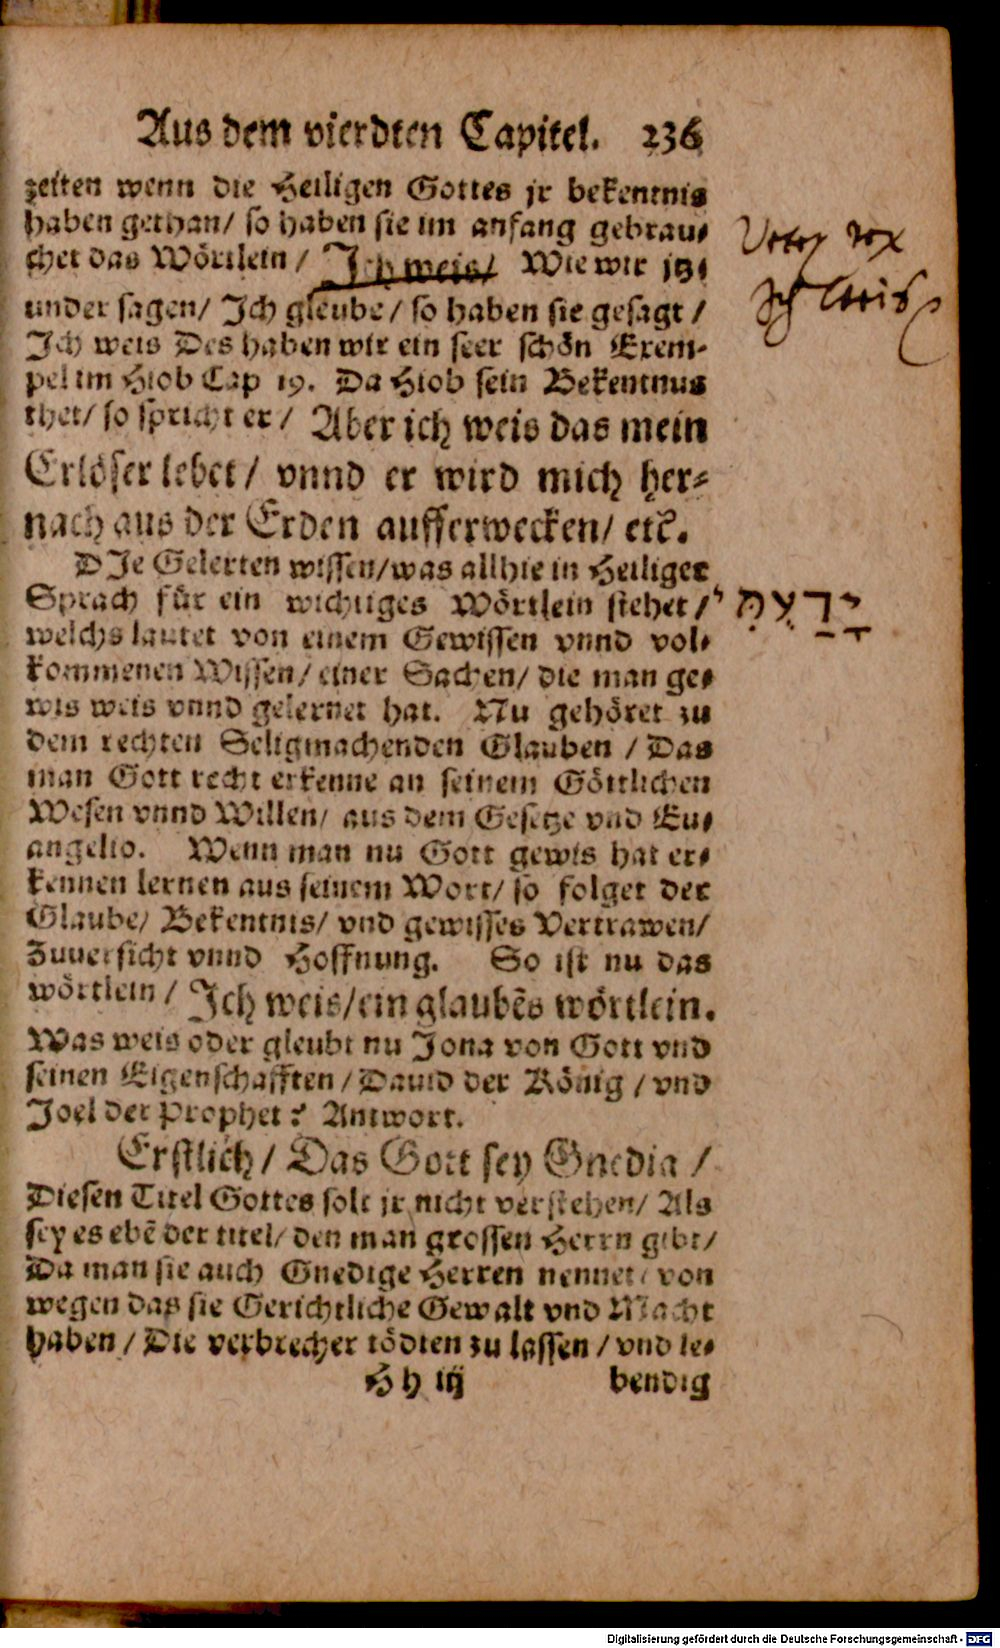 Aus dem vierdten Capitel. 236
zeiten wenn die Heiligen Gottes jr bekentnis
haben gethan/ so haben sie im anfang gebrau⸗
chet das Wörtlein / Ich weis/ Wie wir jtz⸗
under sagen/ Ich gleube/ so haben sie gesagt /
Ich weis Des haben wir ein seer schön Exem-
pel im Hiob Cap 19. Da Hiob sein Bekentnus
thet/ so spricht er / Aber ich weis das mein
Erlöser lebet/ vnnd er wird mich her⸗
nach aus der Erden aufferwecken/ etc.
DIe Gelerten wissen/was allhie in Heiliger
Sprach für ein wichtiges Wörtlein stehet /
welchs lautet von einem Gewissen vnnd vol⸗
kommenen Wissen/ einer Sachen/ die man ge⸗
wis weis vnnd gelernet hat. Nu gehöret zu
dem rechten Seligmachenden Glauben / Das
man Gott recht erkenne an seinem Göttlichen
Wesen vnnd Willen/ aus dem Gesetze vnd Eu⸗
angelio. Wenn man nu Gott gewis hat er⸗
kennen lernen aus seinem Wort/ so folget der
Glaube/ Bekentnis/ vnd gewisses Vertrawen/
Zuuersicht vnnd Hoffnung. So ist nu das
wörtlein / Ich weis/ein glaubẽs wörtlein.
Was weis oder gleubt nu Jona von Gott vnd
seinen Eigenschafften / Dauid der König / vnd
Joel der Prophet? Antwort.
Erstlich/ Das Gott sey Gnedig /
Diesen Titel Gottes solt jr nicht verstehen/ Als
sey es ebẽ der titel/ den man grossen Herrn gibt/
Da man sie auch Gnedige Herren nennet/ von
wegen das sie Gerichtliche Gewalt vnd Macht
haben / Die verbrecher tödten zu lassen / vnd le⸗
Hh iij bendig
vox
Ich weis
Digitalisierung gefördert durch die Deutsche Forschungsgemeinschaft - DFG